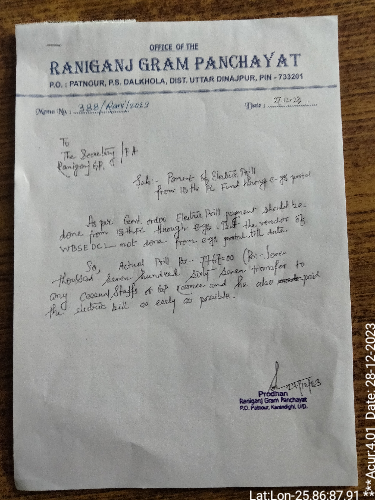 OFFICE OF THE
RANIGANJ GRAM PANCHAYAT
P.O. : PATNOUR, P.S. DALKHOLA, DIST. UTTAR DINAJPUR, PIN - 733201
Memo No. : 388/Rani/2023
Date :
To
The Secretary / E.A
Raniganj G.P.
Sub:- Payment of Electric Bill
from 15th FC Fund through e-gs portal
As per Govt. order Electric Bill payment should be
done from 15th FC through e-gs. But the vendor of
WBSEDCL not done from e-gs portal till date.
So, Actual Bill Rs.- 7767.00 (Rs.- Seven
thousand seven hundred sixty seven transfer to
any Casual Staffs of GP and he also paid
the electric bill as early as possible.
Prodhan
Raniganj Gram Panchayat
P.O. Patnour, Karandighi, U/D.
Lat:Lon-25.86:87.91 ***Acur:4.01 Date: 28-12-2023